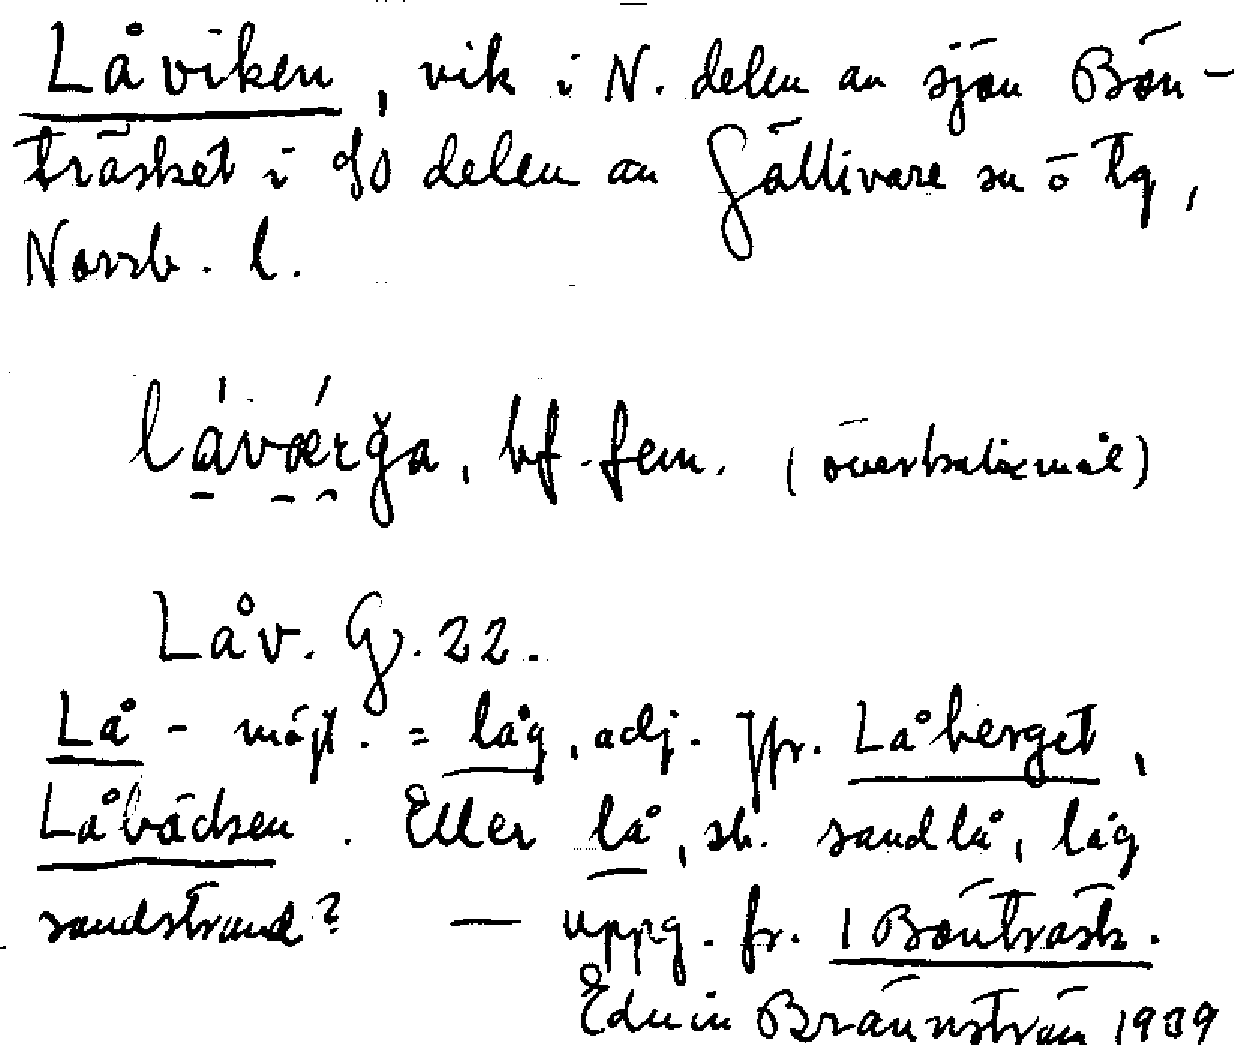 Låviken, vik i N. delen av sjön Bön-
träsket i SO delen av Gällivare sn o tg,
Norrb. l.
lá̱vǽrğa, bf. fem. (överkalixmål)
Låv. G. 22.
Lå- möjl. = låg, adj. Jfr. Låberget,
Låbäcken. Eller lå, sb. sandlå, låg
sandstrand? — uppg. fr. 1 Bönträsk.
Edvin Brännström 1939